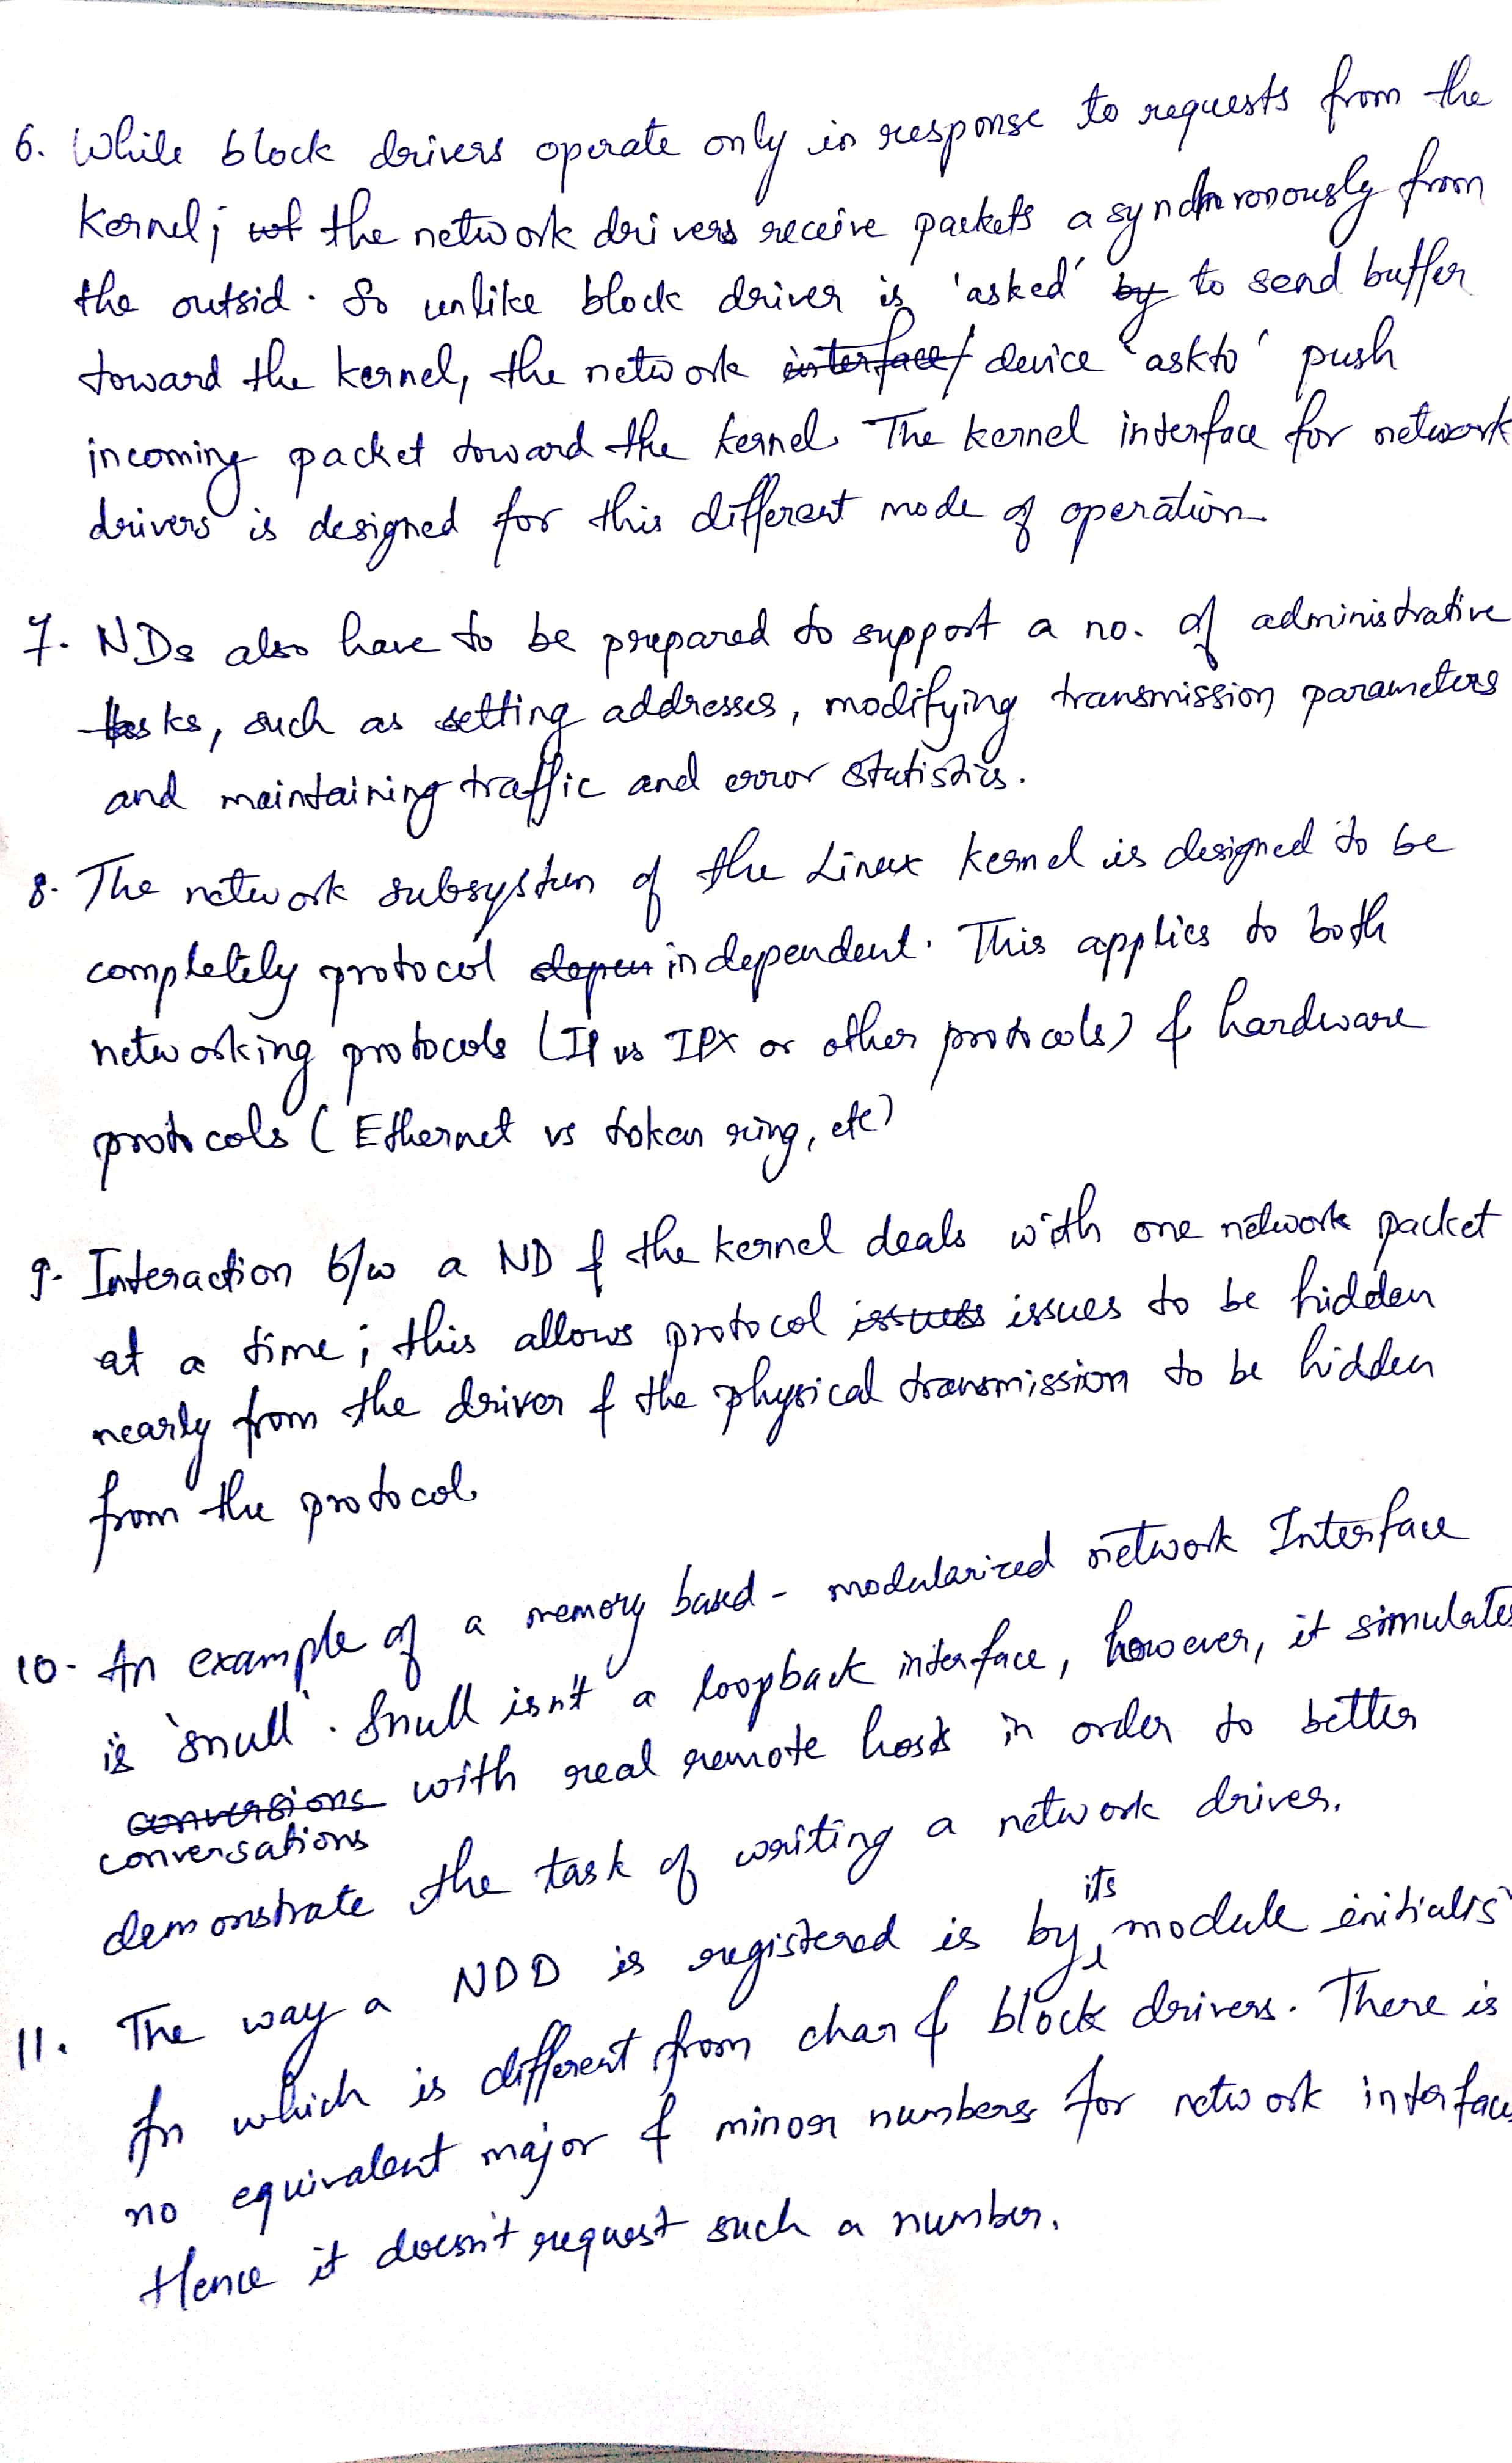 6. While block drivers operate only in response to requests from the
Kernel; the network drivers receive packets asynchronously from
the outsid. So unlike block driver is 'asked' to send buffer
toward the kernel, the network device 'ask to' push
incoming packet toward the kernel. The kernel interface for network
drivers is designed for this different mode of operation.
7. NDs also have to be prepared to support a no. of administrative
tasks, such as setting addresses, modifying transmission parameters
and maintaining traffic and error statistics.
8. The network subsystem of the Linux kernel is designed to be
completely protocol independent. This applies to both
networking protocols (IP vs IPX or other protocols) & hardware
protocols (Ethernet vs token ring, etc)
9. Interaction b/w a ND & the kernel deals with one network packet
at a time; this allows protocol issues to be hidden
nearly from the driver & the physical transmission to be hidden
from the protocol.
10. An example of a memory based - modularized network Interface
is 'snull'. Snull isn't a loopback interface, however, it simulates
conversations with real remote hosts in order to better
demonstrate the task of writing a network driver.
11. The way a NDD is registered is by its module initialis
fn which is different from char & block drivers. There is
no equivalent major & minor numbers for network interfaces
Hence it doesn't request such a number.